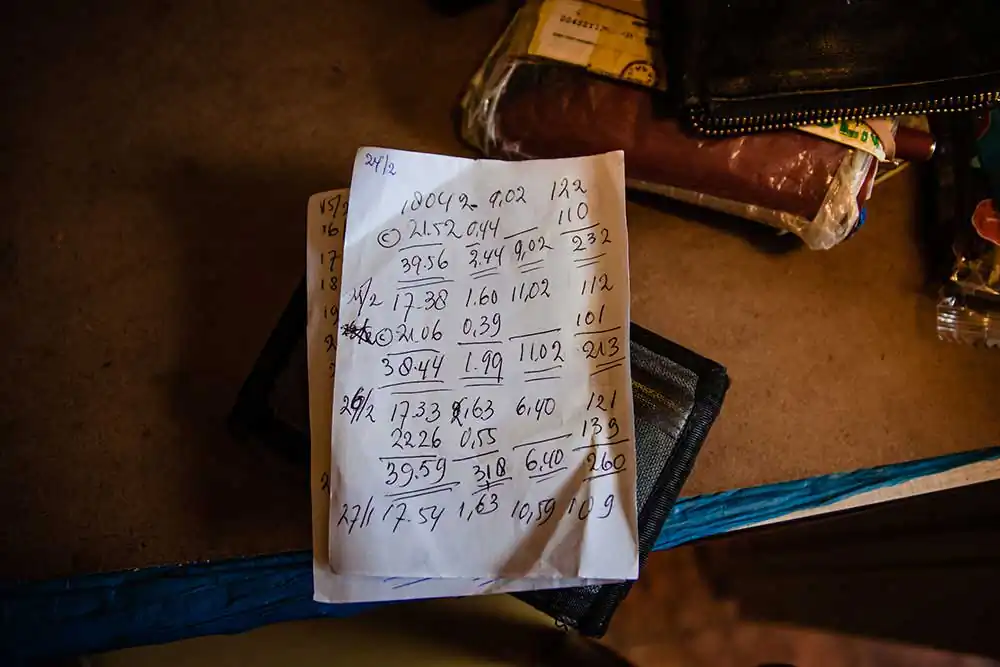 24/2
18042 9,02 122
© 21.52 0,44 110
39.56 2.44 9,02 232
17.38 1.60 11,02 112
© 21.06 0,39 101
38.44 1.99 11,02 213
26/2 17.33 2,63 6,40 121
22.26 0,55 139
39.59 318 6,40 260
27/1 17.54 1,63 10,59 109
15/2
16
17
18